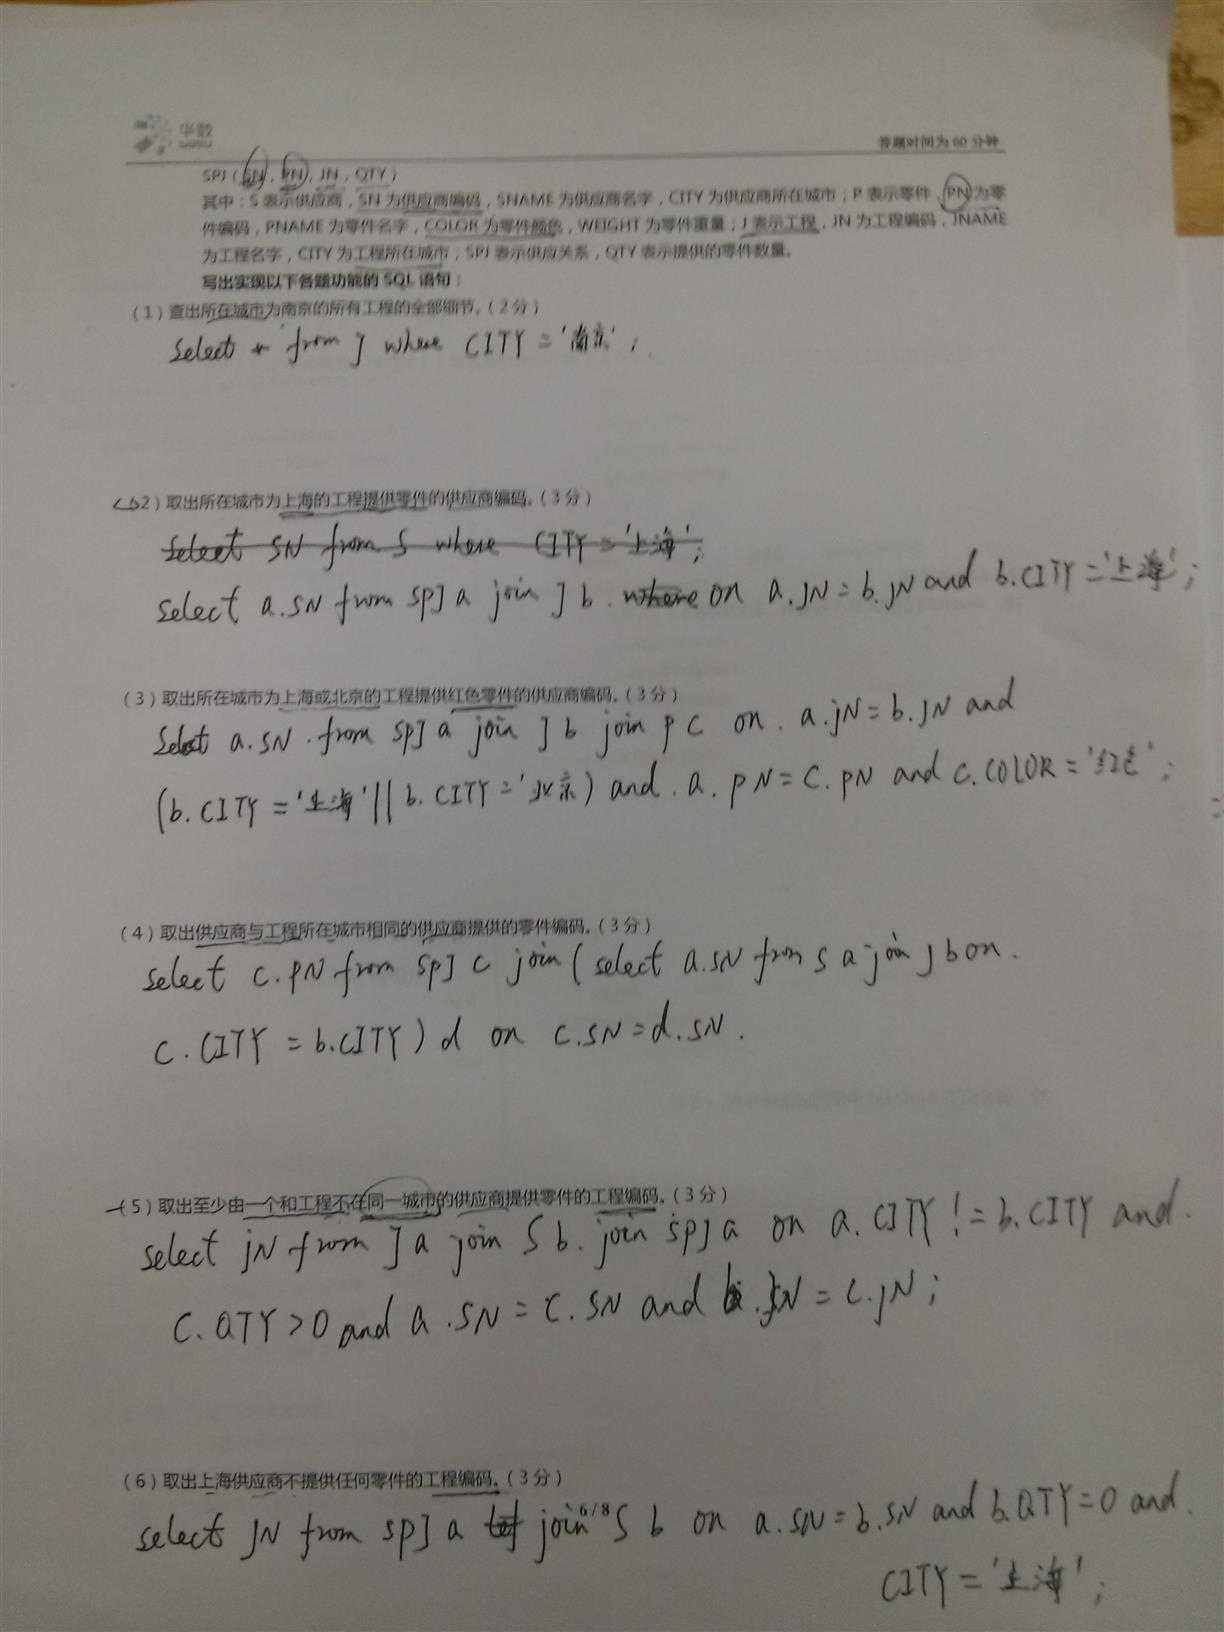 华数
答题时间为60分钟
SPJ（SN，PN，JN，QTY）
其中：S 表示供应商，SN 为供应商编码，SNAME 为供应商名字，CITY 为供应商所在城市；P 表示零件，PN 为零
件编码，PNAME 为零件名字，COLOR 为零件颜色，WEIGHT 为零件重量；J 表示工程，JN 为工程编码，JNAME
为工程名字，CITY 为工程所在城市；SPJ 表示供应关系，QTY 表示提供的零件数量。
写出实现以下各题功能的 SQL 语句：
（1）查出所在城市为南京的所有工程的全部细节。（2 分）
select * from J where CITY = '南京';
（2）取出所在城市为上海的工程提供零件的供应商编码。（3 分）
select SN from S where CITY = '上海';
select a.SN from SPJ a join J b where on a.JN = b.JN and b.CITY = '上海';
（3）取出所在城市为上海或北京的工程提供红色零件的供应商编码。（3 分）
select a.SN from SPJ a join J b join P c on a.jN = b.JN and
(b.CITY = '上海' || b.CITY = '北京') and a.PN = c.PN and c.COLOR = '红色';
（4）取出供应商与工程所在城市相同的供应商提供的零件编码。（3 分）
select c.PN from SPJ c join (select a.SN from S a join J b on
c.CITY = b.CITY) d on c.SN = d.SN.
（5）取出至少由一个和工程不在同一城市的供应商提供零件的工程编码。（3 分）
select jN from J a join S b join SPJ a on a.CITY != b.CITY and
c.QTY > 0 and a.SN = c.SN and b.JN = c.jN;
（6）取出上海供应商不提供任何零件的工程编码。（3 分）
select JN from SPJ a join S b on a.SN = b.SN and b.QTY = 0 and
6/8
CITY = '上海';